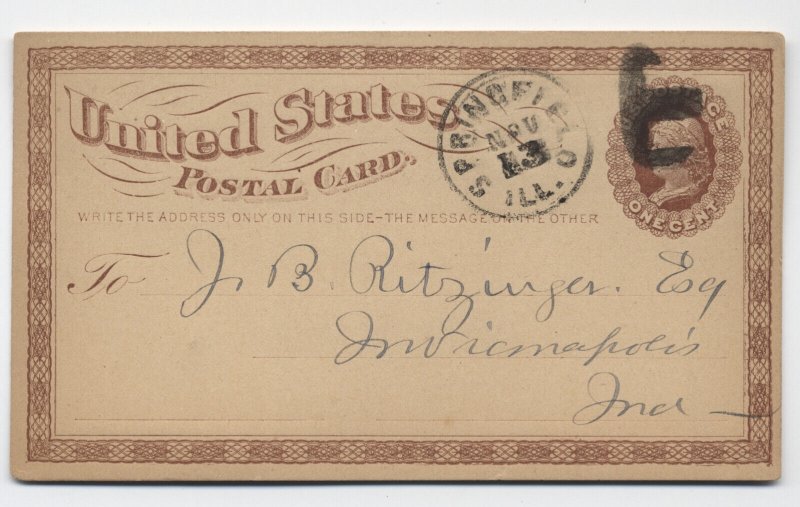 United States
POSTAL CARD.
WRITE THE ADDRESS ONLY ON THIS SIDE–THE MESSAGE ON THE OTHER
SPRINGFIELD
NOV
13
ILL.
ONE CENT
To J. B. Ritzinger. Esq
Indianapolis
Ind